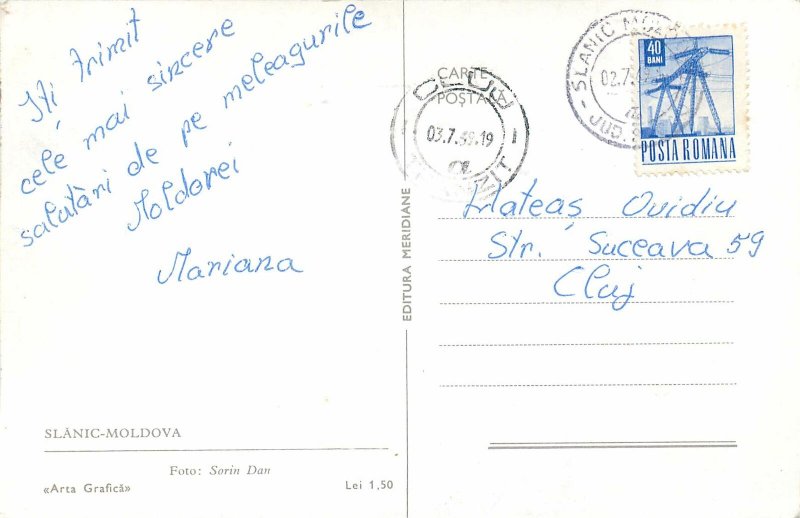 Iți trimit
cele mai sincere
salutări de pe meleagurile
Moldovei
Mariana
SLĂNIC-MOLDOVA
Foto: Sorin Dan
«Arta Grafică»
Lei 1,50
EDITURA MERIDIANE
CARTE
POȘTA
CLUJ
03.7.69.19
SLANIC MOLD
02.7
JUD.
40
BANI
POSTA ROMANA
Mateaș Ovidiu
Str. Suceava 59
Cluj